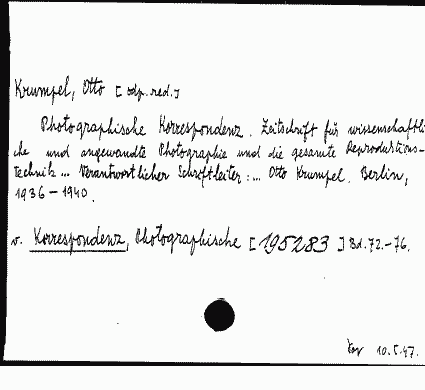 Krumpel, Otto [odp. red.]
Photographische Korrespondenz. Zeitschrift für wissenschaftli
che und angewandte Photographie und die gesamte Reproduktions-
technik ... Verantwortlicher Schriftleiter: ... Otto Krumpel. Berlin,
1936 – 1940.
v. Korrespondenz, Photographische [195283] Bd. 72.–76.
10.V.47.